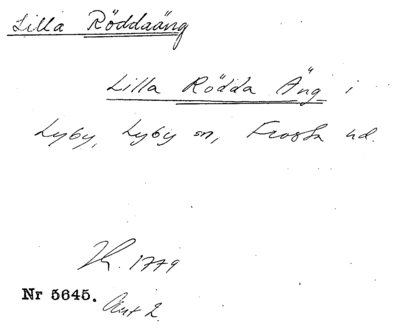 Lilla Röddaäng
Lilla Rödda Äng i
Lyby, Lyby sn, Frosta hd.
1779
Nr 5645.